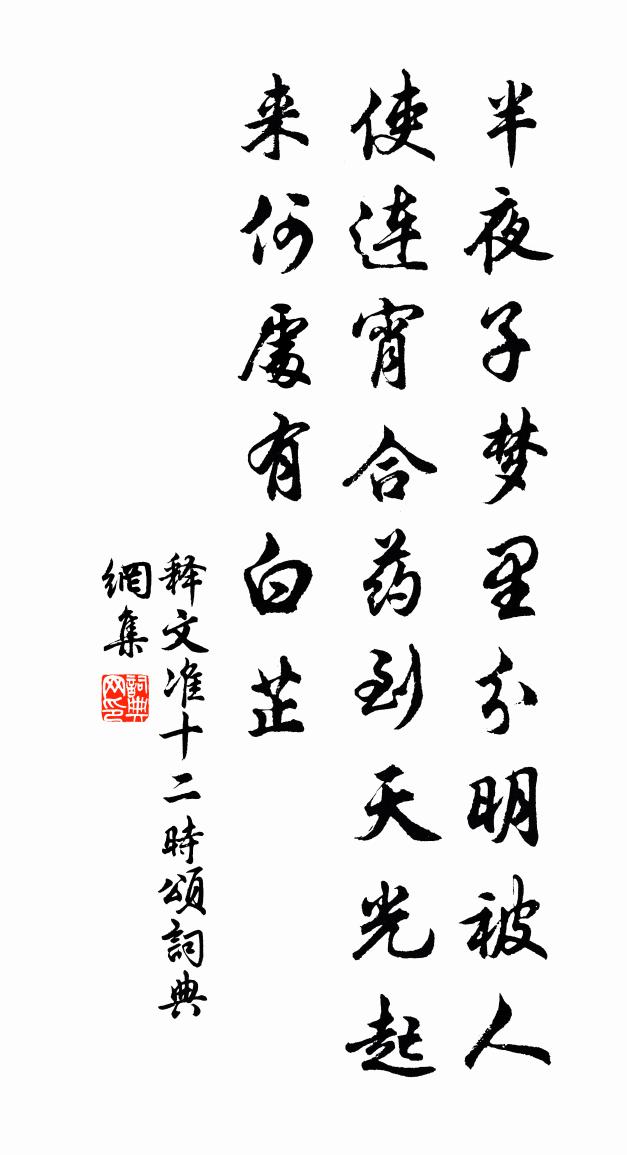 半夜子梦里分明被人
使连宵合药到天光起
来何處有白芷
释文准十二時頌詞典
網集
詞典网印